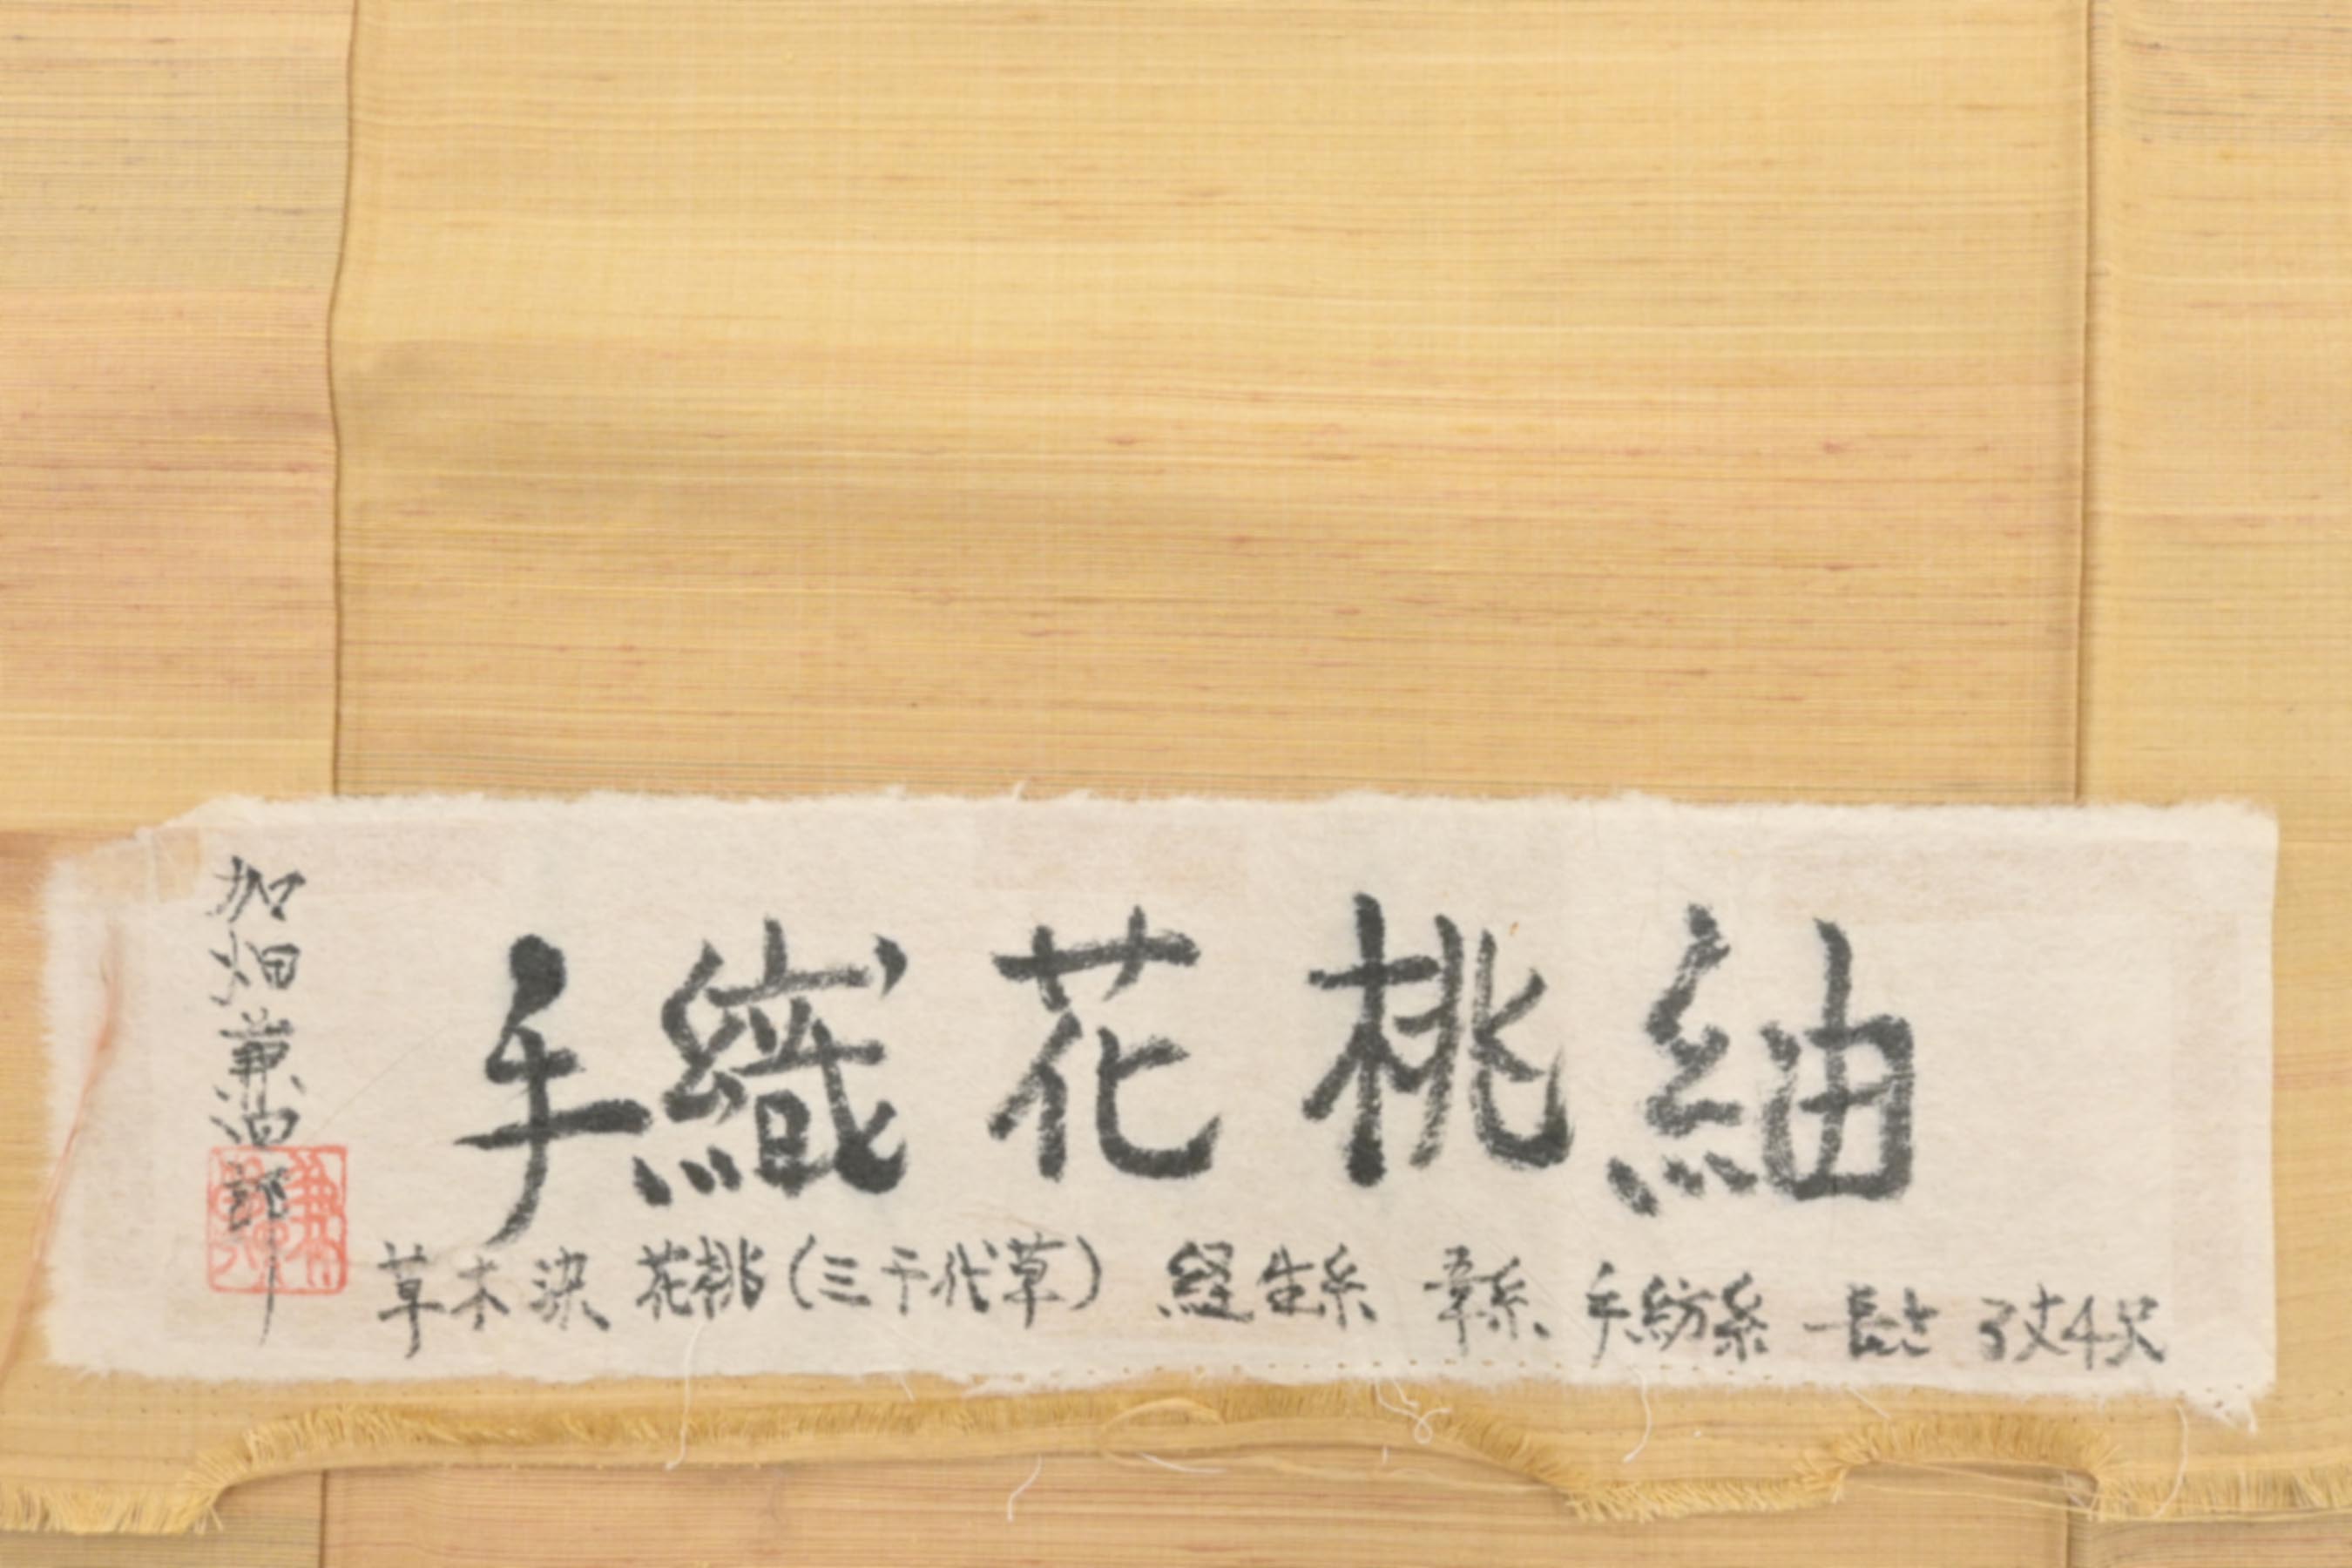 加畑兼四郎
手織花桃紬
草木染 花桃(三千代草) 経生糸 手紡糸 長さ 3丈4尺